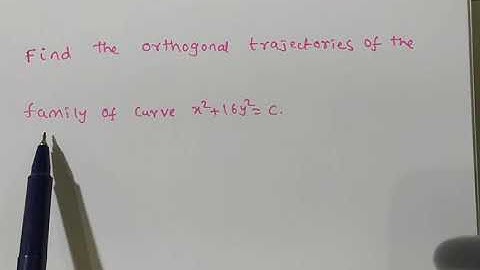 Find the orthogonal trajectories of the
family of curve x²+16y²= c.